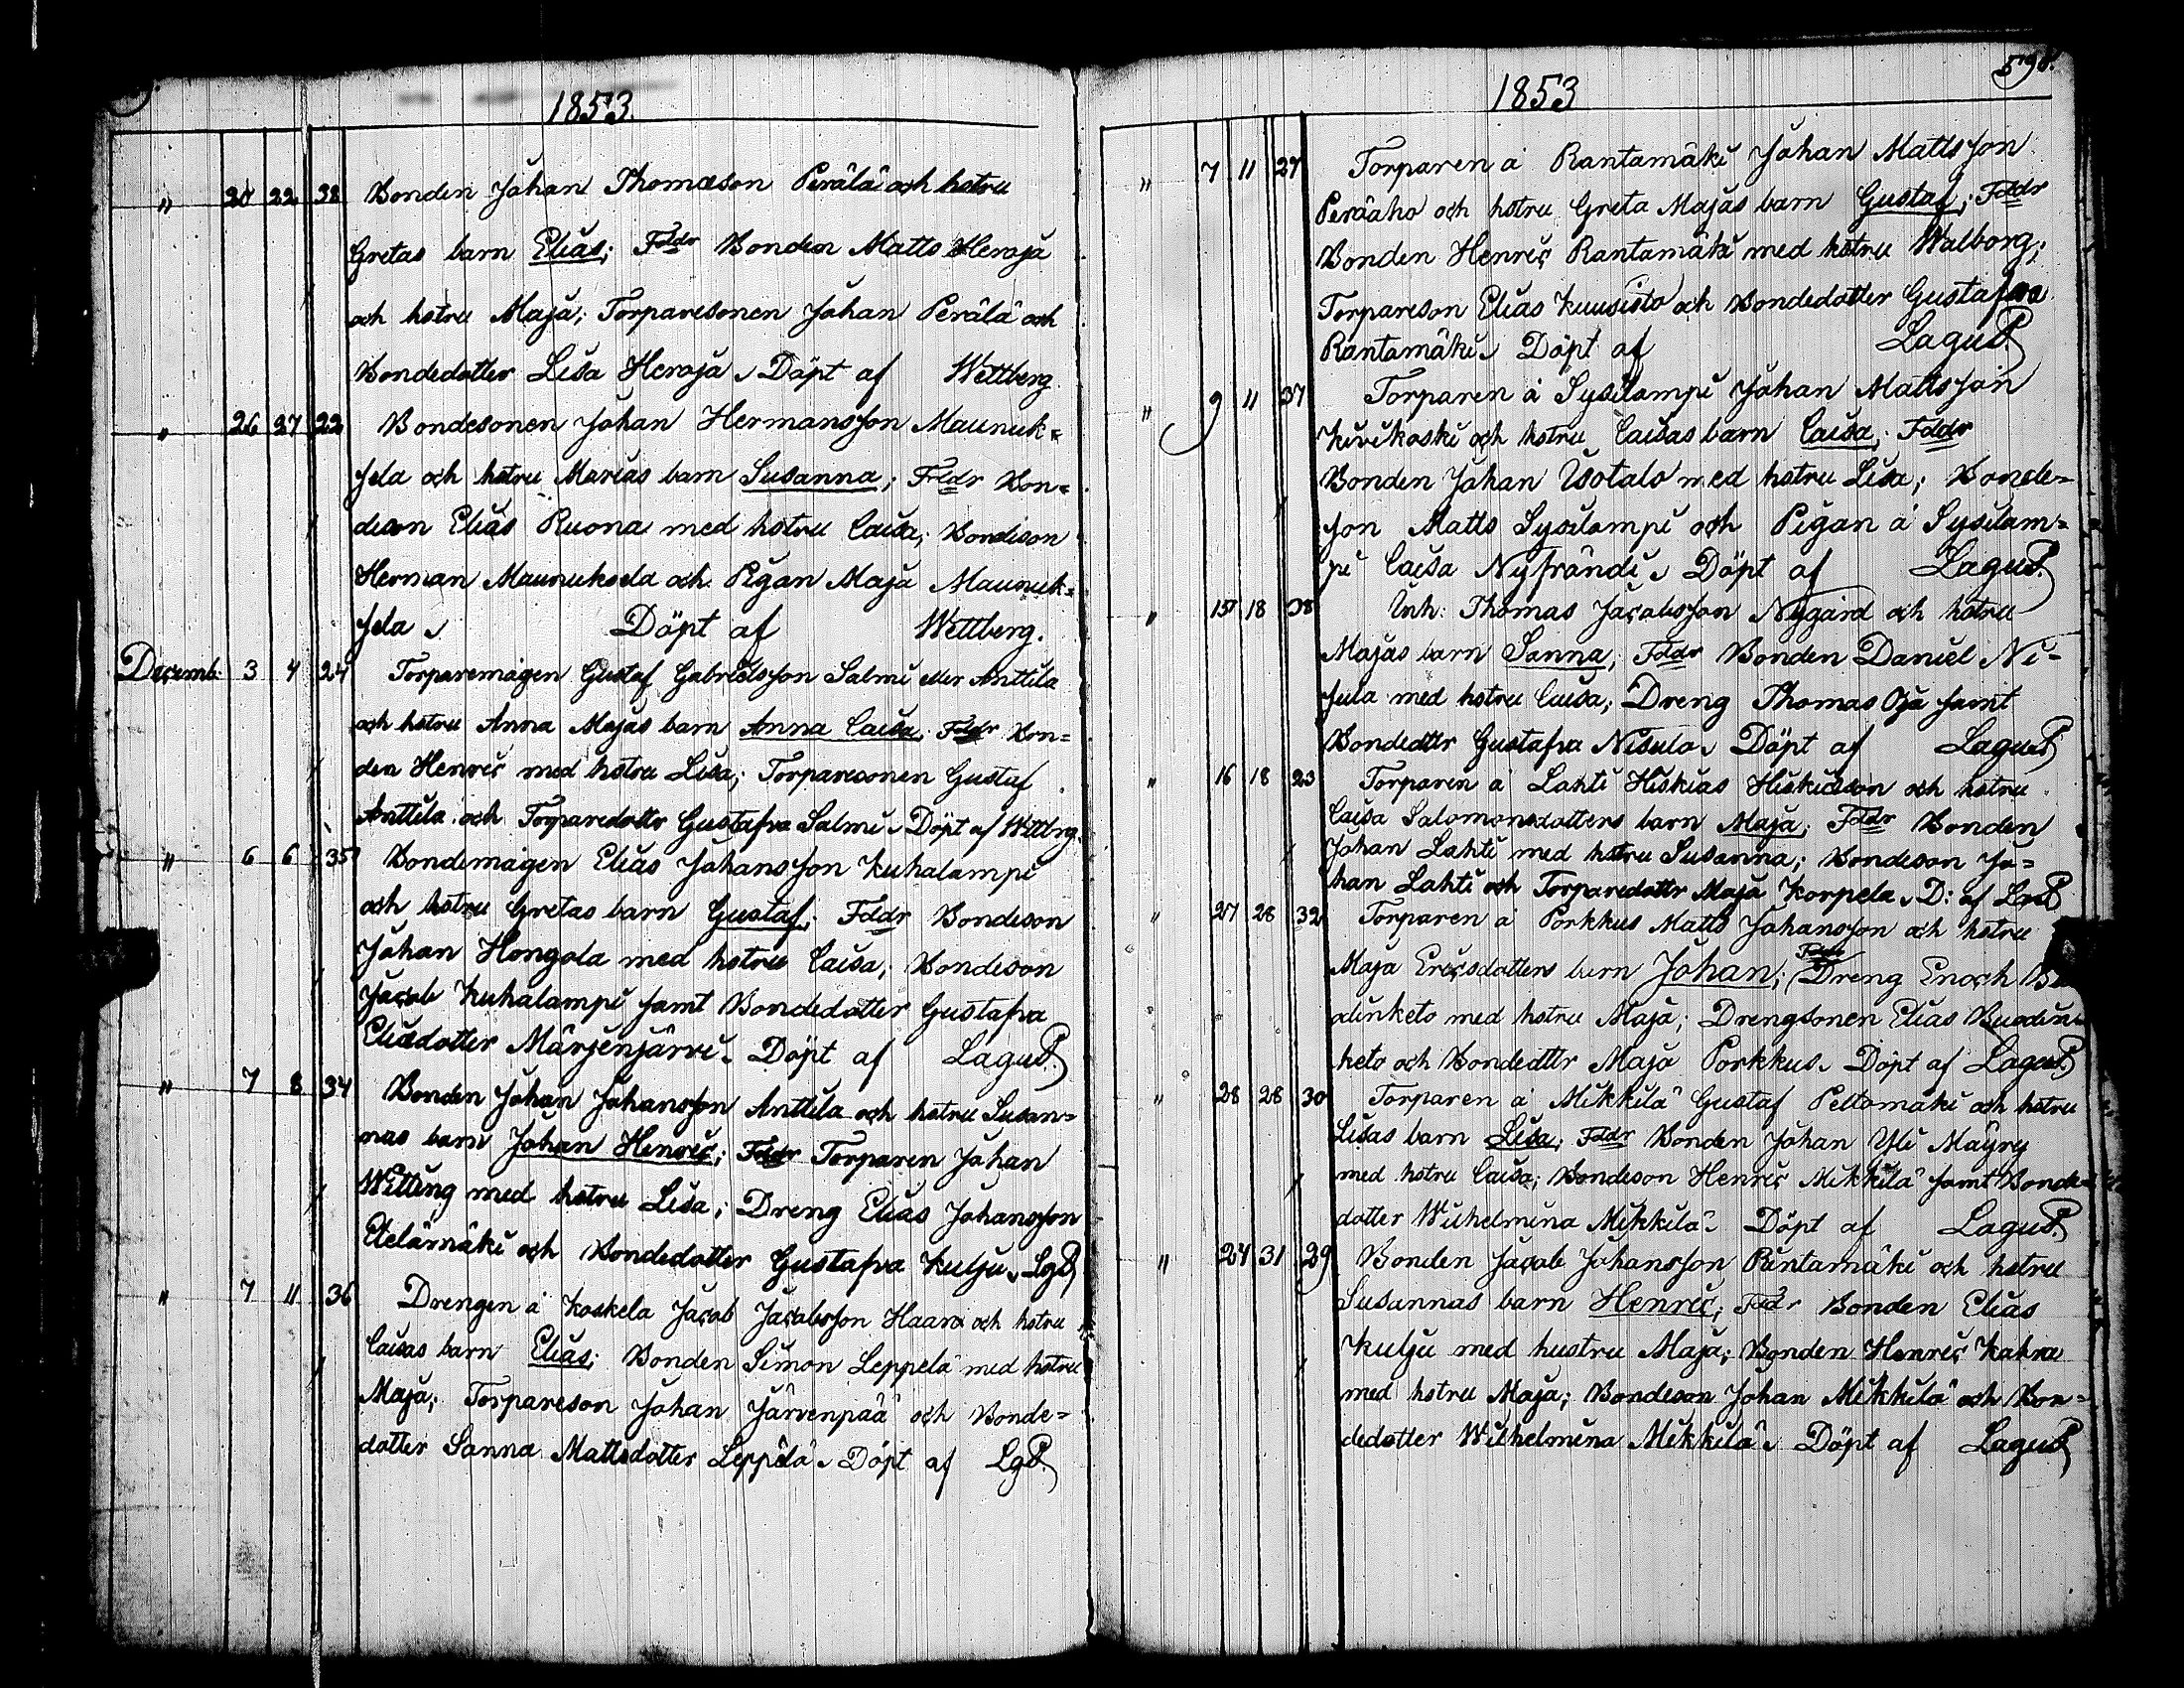 1853.
" 20 22 38 Bonden Johan Thomason Perälä och hstru
Gretas barn Elias; Fddr Bonden Matts Heroja
och hstru Maja; Torparesonen Johan Perälä och
Bondedotter Lisa Heroja. Döpt af Wettberg.
" 26 27 22 Bondesonen Johan Hermansson Maunuk=
sela och hstru Marias barn Susanna; Fddr Bon=
deson Elias Ruona med hstru Caisa; Bondeson
Herman Maunuksela och Pigan Maja Maunuk=
sela. Döpt af Wettberg.
Decemb. 3 4 24 Torparemågen Gustaf Gabrielsson Salmi eller Anttila
och hstru Anna Majas barn Anna Caisa; Fddr Bon=
den Henric med hstru Lisa; Torparesonen Gustaf
Anttila och Torparedottr Gustafva Salmi. Döpt af Wttbrg.
" 6 6 35 Bondemågen Elias Johansson Kuhalampi
och hstru Gretas barn Gustaf; Fddr Bondeson
Johan Hongola med hstru Caisa; Bondeson
Jacob Kuhalampi samt Bondedotter Gustafva
Eliasdotter Märjenjärvi. Döpt af Lagus.
" 7 8 34 Bonden Johan Johansson Anttila och hstru Susan=
nas barn Johan Henric; Fddr Torparen Johan
Witting med hstru Lisa; Dreng Elias Johansson
Etelämäki och Bondedotter Gustafva Kulju. LgP
" 7 11 36 Drengen å Koskela Jacob Jacobsson Haara och hstru
Caisas barn Elias; Bonden Simon Leppelä med hstru
Maja; Torpareson Johan Järvenpää och Bonde=
dotter Sanna Mattsdotter Leppälä. Döpt af LgP.
598.
1853
" 7 11 27 Torparen å Rantamäki Johan Mattsson
Peräaho och hstru Greta Majas barn Gustaf; Fddr
Bonden Henric Rantamäki med hstru Walborg;
Torpareson Elias Kuusisto och Bondedotter Gustafva
Rantamäki. Döpt af Lagus.
" 9 11 37 Torparen å Sysilampi Johan Mattsson
Kivikoski och hstru Caisas barn Caisa; Fddr
Bonden Johan Isotalo med hstru Lisa; Bonde=
son Matts Sysilampi och Pigan å Sysilam=
pi Caisa Nyfrändi. Döpt af Lagus.
" 15 18 38 Inh: Thomas Jacobsson Nygård och hstru
Majas barn Sanna; Fddr Bonden Daniel Ni-
sula med hstru Caisa; Dreng Thomas Oja samt
Bondedttr Gustafva Nisula. Döpt af Lagus
" 16 18 23 Torparen å Lahti Hiskias Hiskiasson och hstru
Caisa Salomonsdotters barn Maja; Fddr Bonden
Johan Lahti med hstru Susanna; Bondeson Jo=
han Lahti och Torparedottr Maja Korpela. D: af
" 27 28 32 Torparen å Porkkus Matts Johansson och hstru
Maja Ericsdotters barn Johan; Fddr Dreng Enoch
dinketo med hstru Maja; Drengsonen Elias
keto och Bondedttr Maja Porkkus. Döpt af Lagus
" 28 28 30 Torparen å Mikkilä Gustaf Peltomäki och hstru
Lisas barn Lisa; Fddr Bonden Johan Yli Mäyry
med hstru Caisa; Bondeson Henric Mikkilä samt Bonde=
dotter Wilhelmina Mikkilä. Döpt af Lagus.
" 24 31 29 Bonden Jacob Johansson Pintamäki och hstru
Susannas barn Henric; Fddr Bonden Elias
Kulju med hustru Maja; Bonden Henric Kahra
med hstru Maja; Bondeson Johan Mikkilä och Bon=
dedotter Wilhelmina Mikkilä. Döpt af Lagus